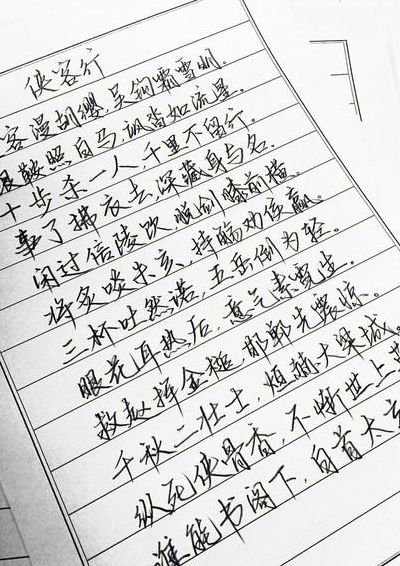 侠客行
客漫胡缨,吴钩霜雪明。
鞍照白马,飒沓如流星。
十步杀一人,千里不留行。
事了拂衣去,深藏身与名。
闲过信陵饮,脱剑膝前横。
将炙啖朱亥,持觞劝侯嬴。
三杯吐然诺,五岳倒为轻。
眼花耳热后,意气素霓生。
救赵挥金槌,邯郸先震惊。
千秋二壮士,烜赫大梁城。
纵死侠骨香,不惭世上
谁能书阁下,白首太